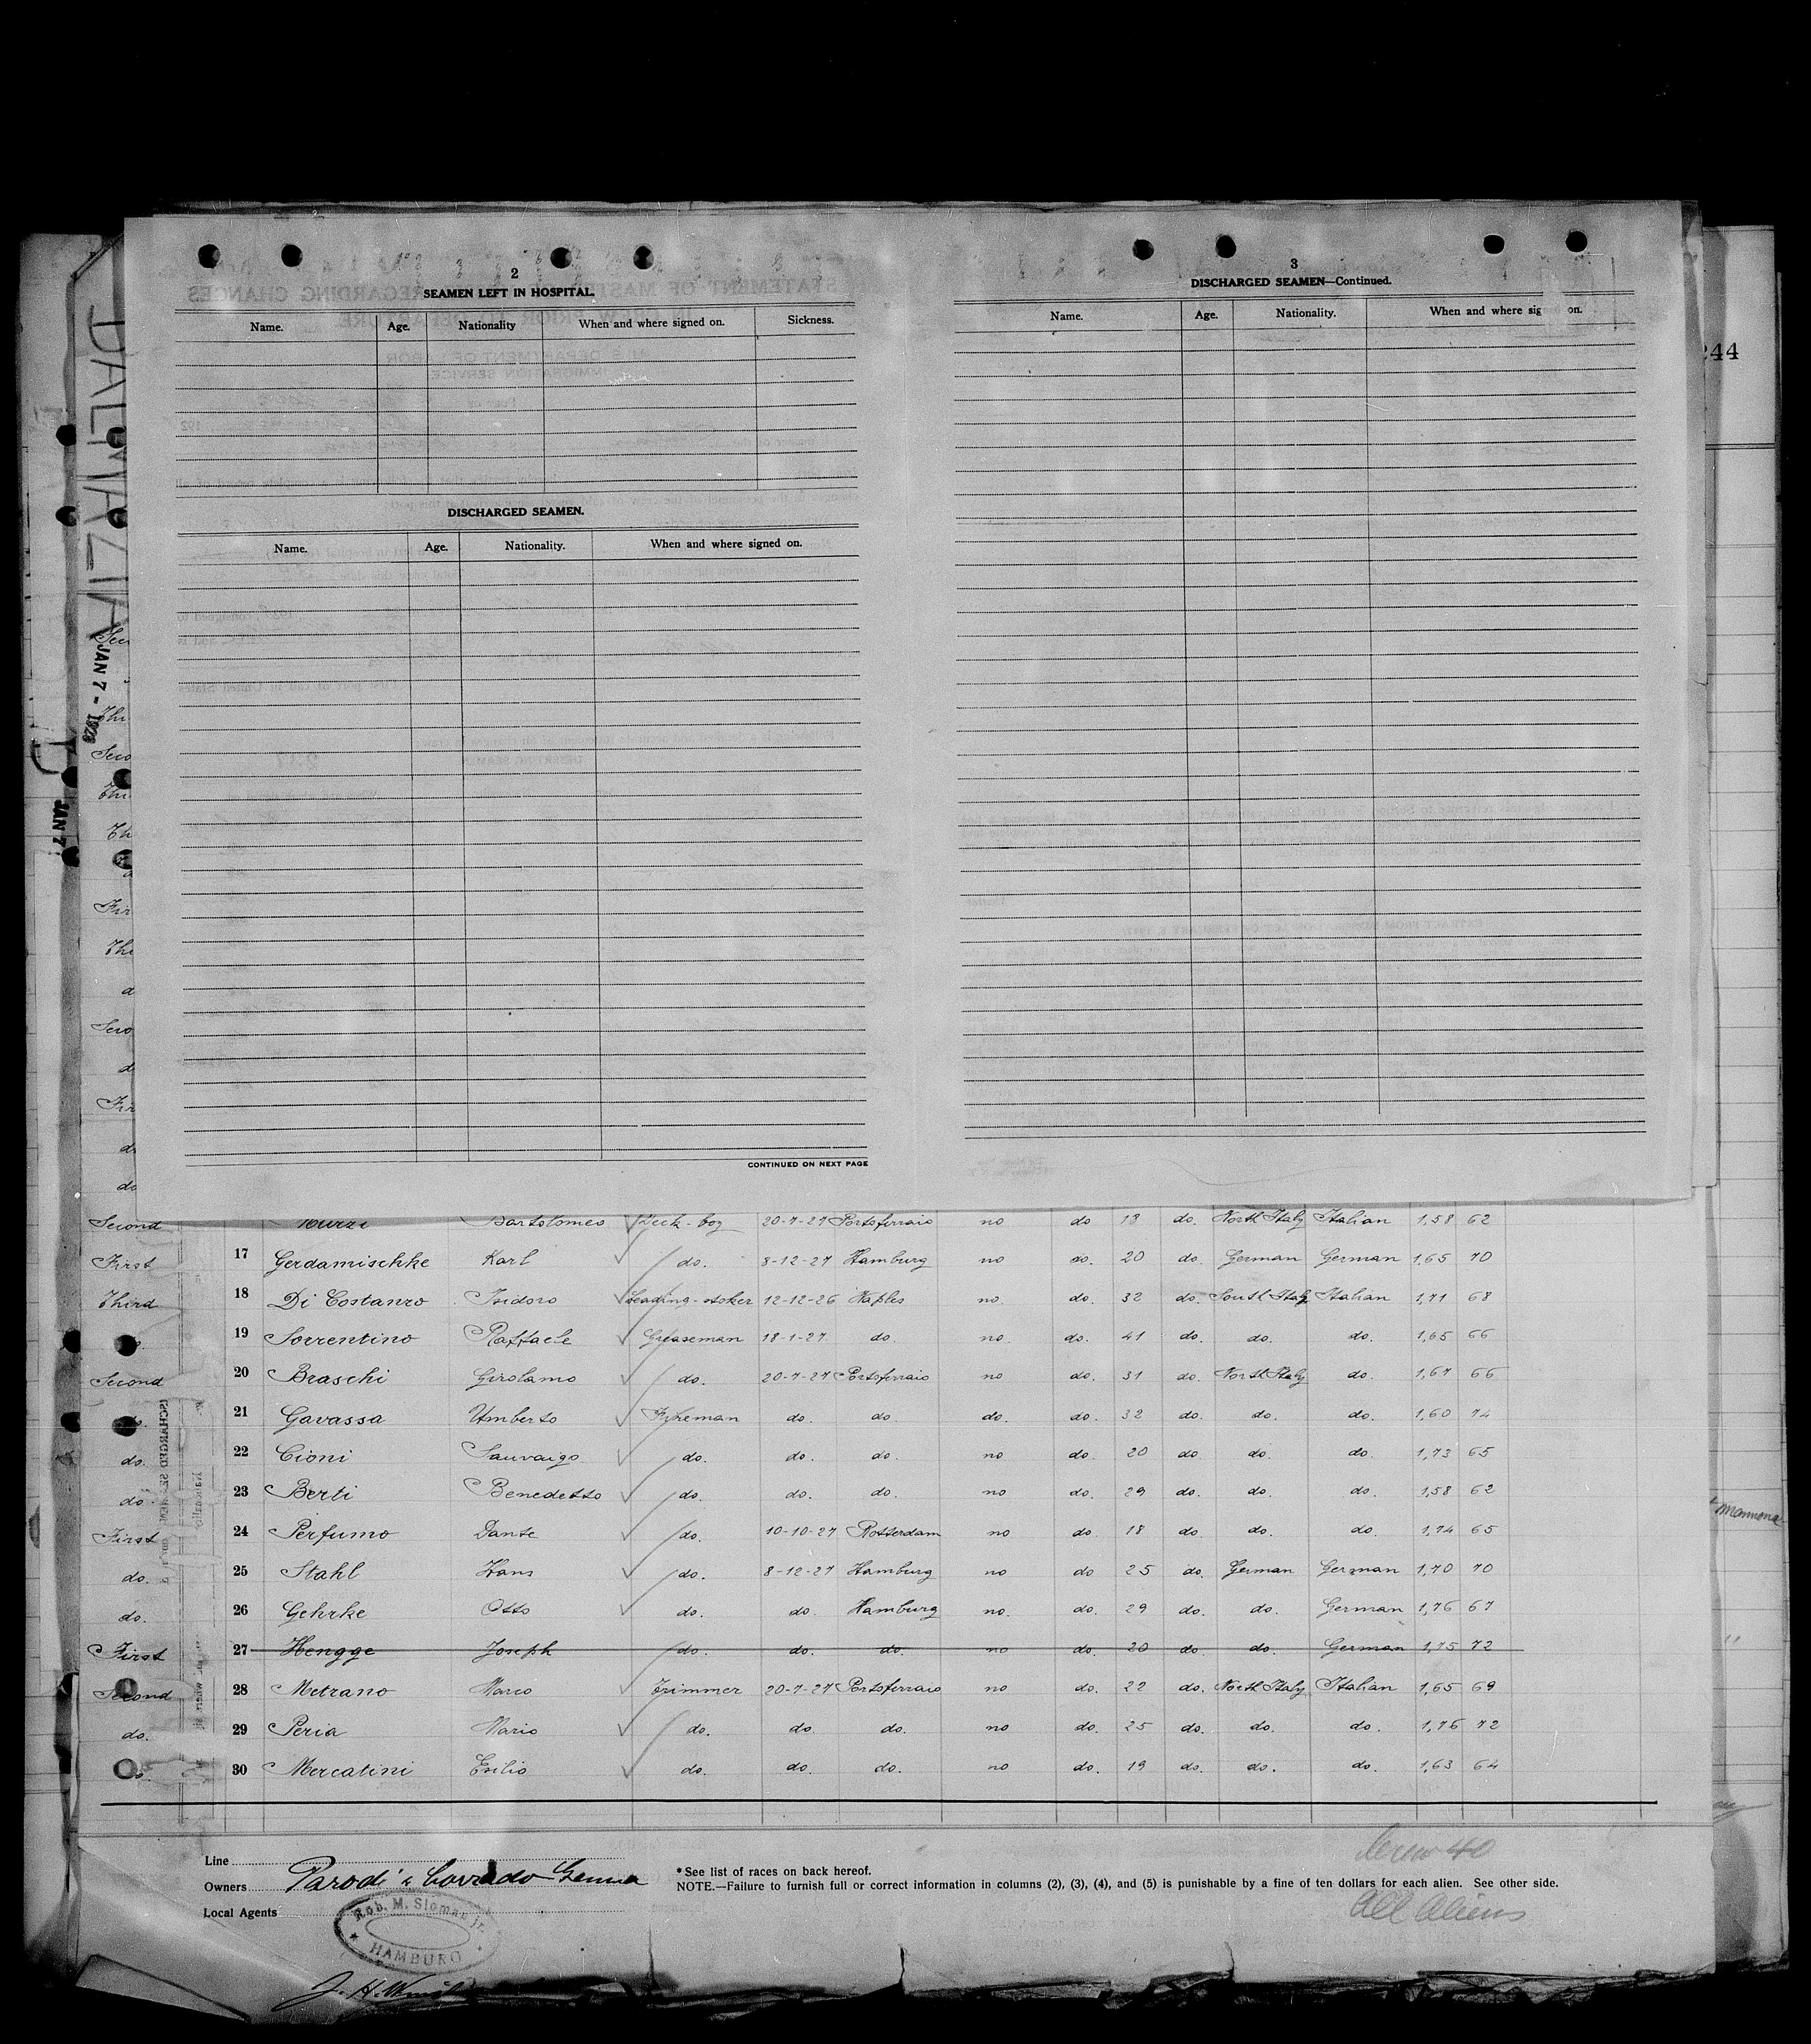 2
SEAMEN LEFT IN HOSPITAL.
Name. Age. Nationality When and where signed on. Sickness.
DISCHARGED SEAMEN.
Name. Age. Nationality. When and where signed on.
CONTINUED ON NEXT PAGE
3
DISCHARGED SEAMEN—Continued.
Name. Age. Nationality. When and where sig on.
244
DALMAZIA
JAN 7 - 1928
JAN 7
Second Bartolomeo Deck-boy 20-7-27 Portoferraio no do 18 do. North Italy Italian 1,58 62
First 17 Gerdamischke Karl do. 8-12-27 Hamburg no do. 20 do. German German 1,65 70
Third 18 Di Costanzo Isidoro Leading-stoker 12-12-26 Naples no. do. 32 do. South Italy Italian 1,71 68
do. 19 Sorrentino Raffaele Greaseman 18-1-27 do. no do. 41 do. do. do. 1,65 66
Second 20 Braschi Girolamo do. 20-7-27 Portoferraio no do. 31 do. North Italy do. 1,67 66
do. 21 Gavassa Umberto Fireman do. do. do. do. 32 do. do. do. 1,60 74
do. 22 Cioni Sauvaigo do. do. do. no do. 20 do. do. do. 1,73 65
do. 23 Berti Benedetto do. do. do. no do. 29 do. do. do. 1,58 62
First 24 Perfumo Dante do. 10-10-27 Rotterdam no do. 18 do. do. do. 1,74 65
do. 25 Stahl Hans do. 8-12-27 Hamburg no do 25 do. German German 1,70 70
do. 26 Gehrke Otto do. do. Hamburg no. do. 29 do. do. German 1,76 67
First 27 Hengge Joseph do. do. do. no do. 20 do. do. German 1,75 72
Second 28 Metrano Marco Trimmer 20-7-27 Portoferraio no do. 22 do. North Italy Italian 1,65 69
do. 29 Peria Mario do. do. do. no do. 25 do. do. do. 1,76 72
do. 30 Mercatini Esilio do. do. do. no do. 19 do. do. do. 1,63 64
Line
Owners Parodi & Corrado Genua
Local Agents
Rob. M. Sloman jr.
HAMBURG
*See list of races on back hereof.
NOTE.—Failure to furnish full or correct information in columns (2), (3), (4), and (5) is punishable by a fine of ten dollars for each alien. See other side.
Crew 40
All Aliens